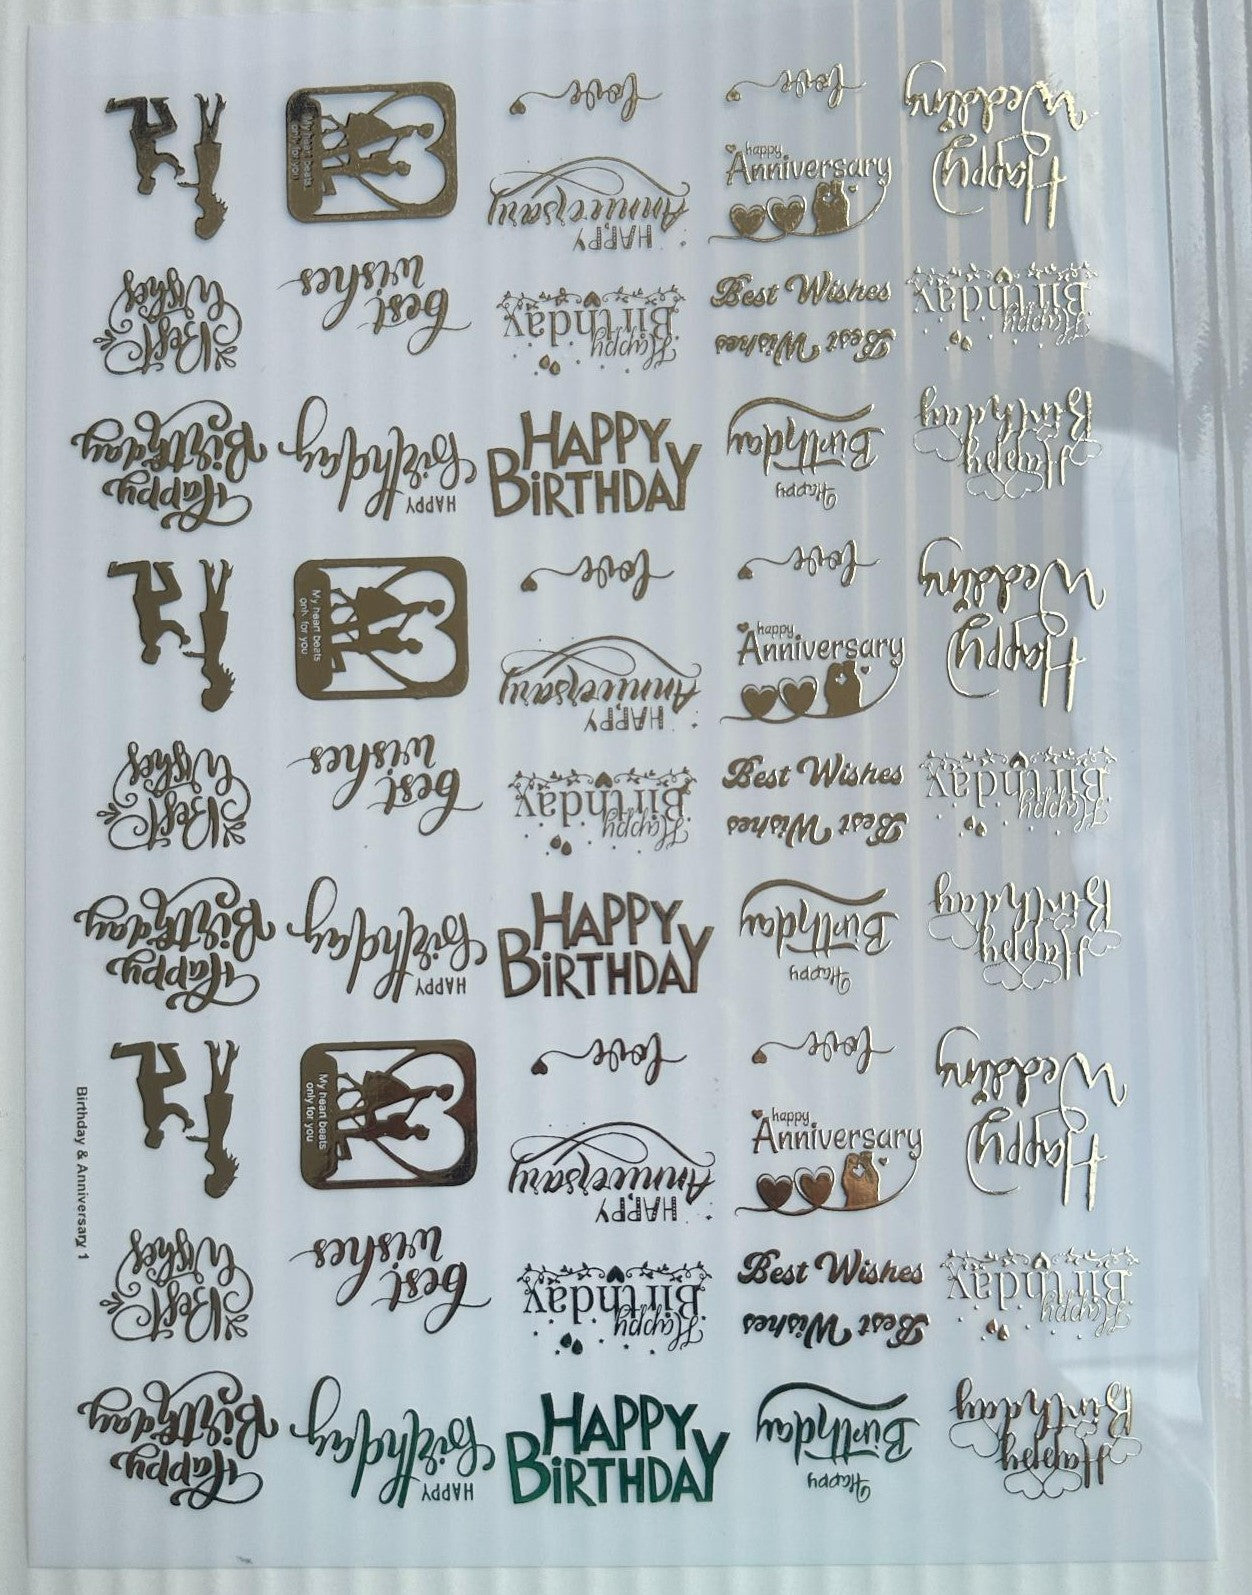 My heart beats
only for you
love
HAPPY
Anniversary
love
happy
Anniversary
Happy
Wedding
Best
Wishes
best
wishes
Happy
Birthday
Best Wishes
Best Wishes
Happy
Birthday
Happy
Birthday
HAPPY
Birthday
HAPPY
BiRTHDAY
Happy
Birthday
Happy
Birthday
My heart beats
only for you
love
HAPPY
Anniversary
love
happy
Anniversary
Happy
Wedding
Best
Wishes
best
wishes
Happy
Birthday
Best Wishes
Best Wishes
Happy
Birthday
Happy
Birthday
HAPPY
Birthday
HAPPY
BiRTHDAY
Happy
Birthday
Happy
Birthday
My heart beats
only for you
love
HAPPY
Anniversary
love
happy
Anniversary
Happy
Wedding
Best
Wishes
best
wishes
Happy
Birthday
Best Wishes
Best Wishes
Happy
Birthday
Happy
Birthday
HAPPY
Birthday
HAPPY
BiRTHDAY
Happy
Birthday
Happy
Birthday
Birthday & Anniversary 1